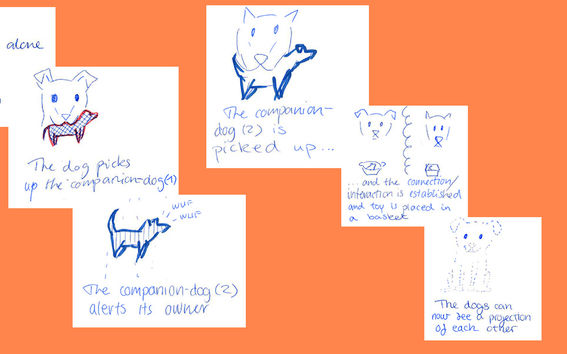 alone
The dog picks
up the companion-dog(1)
WUF
WUF
The companion-dog(2)
alerts its owner
The companion-
dog(2) is
picked up...
...and the connection/
interaction is established
and toy is placed in
a basket
The dogs can
now see a projection
of each other